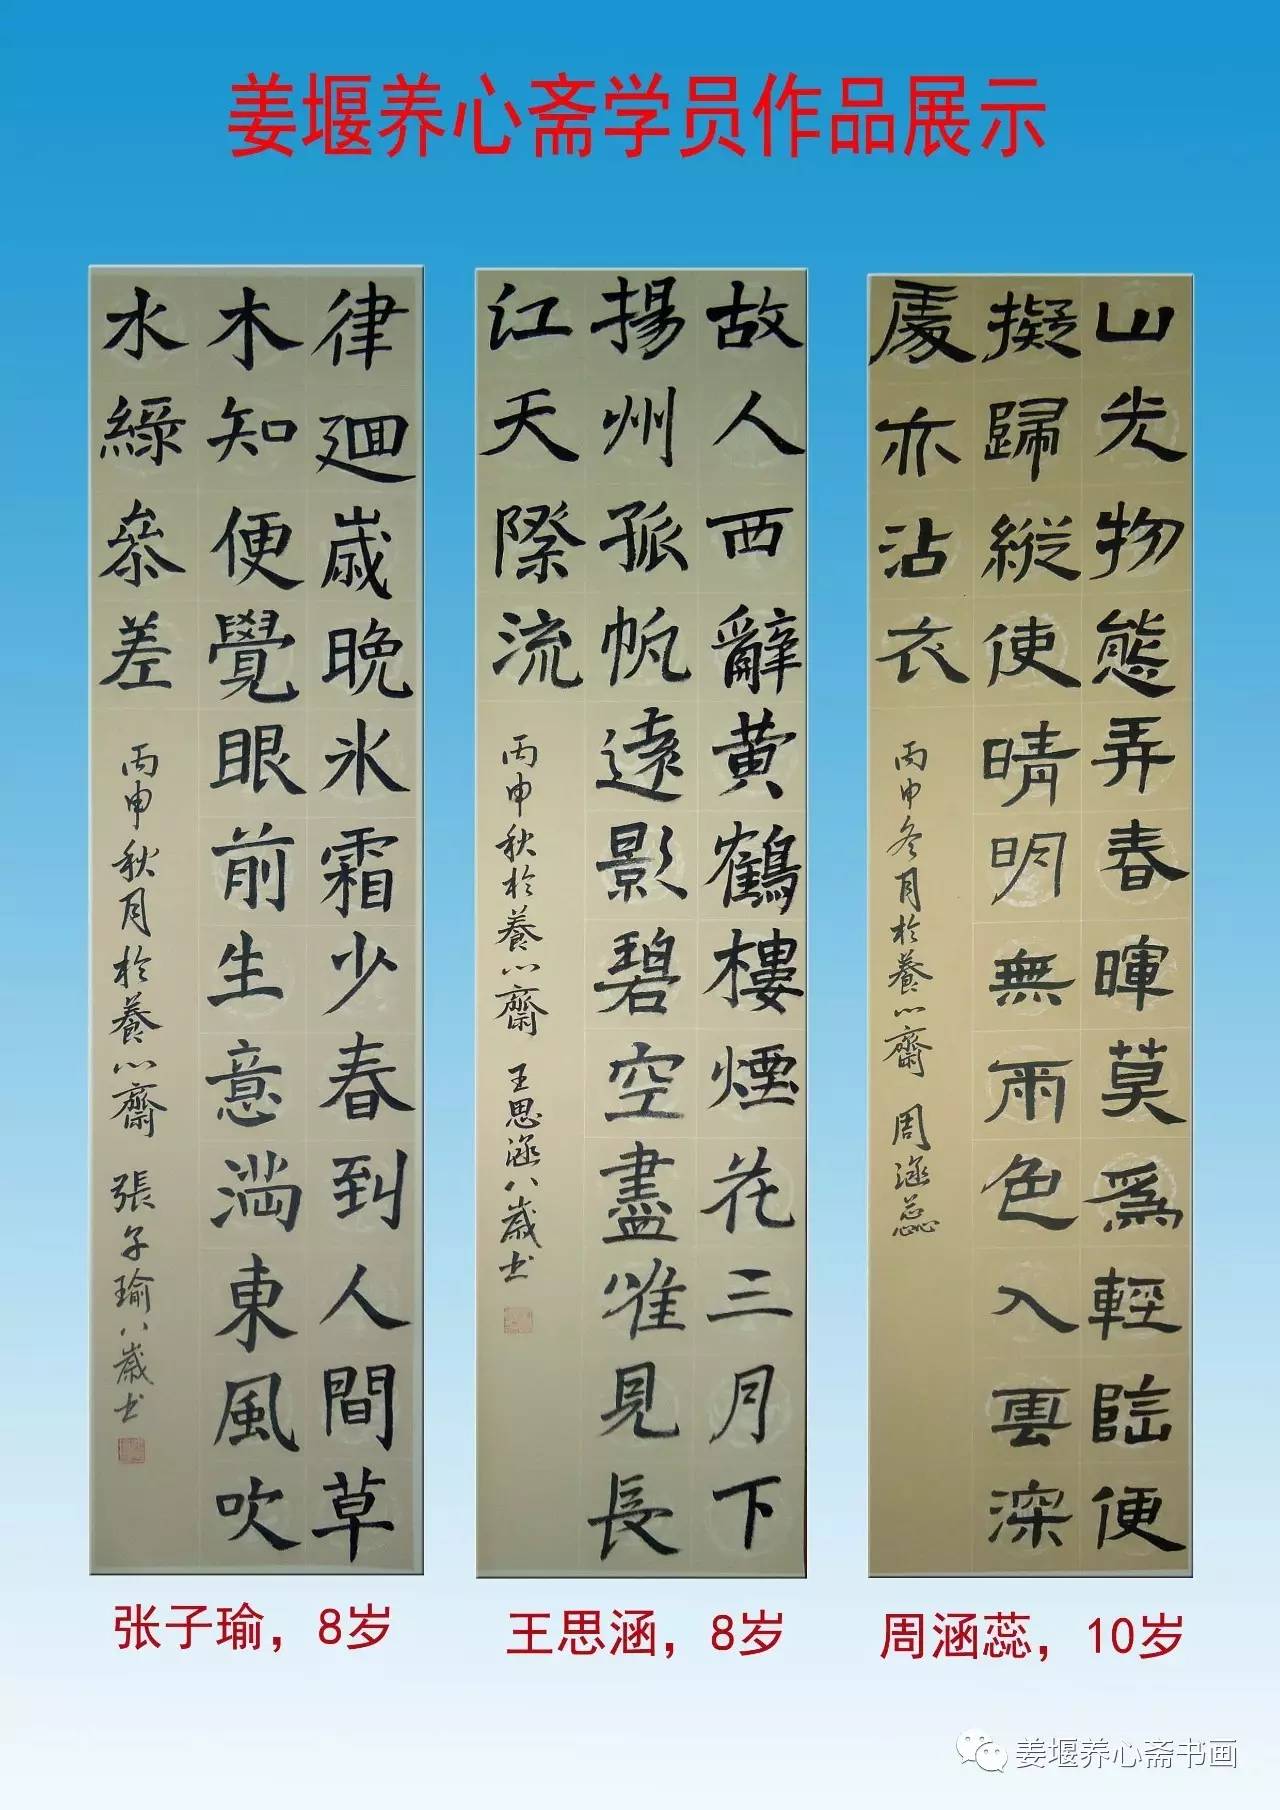 姜堰养心斋学员作品展示
律廻歲晚氷霜少春到人間草
木知便覺眼前生意滿東風吹
水綠叅差
丙申秋月於養心齋 張子瑜八歲书
故人西辭黄鶴樓煙花三月下
揚州孤帆遠影碧空盡唯見長
江天際流
丙申秋於養心齋 王思涵八歲书
山光物態弄春暉莫爲輕陰便
擬歸縱使晴明無雨色入雲深
處亦沾衣
丙申冬月於養心齋 周涵蕊
张子瑜，8岁
王思涵，8岁
周涵蕊，10岁
姜堰养心斋书画